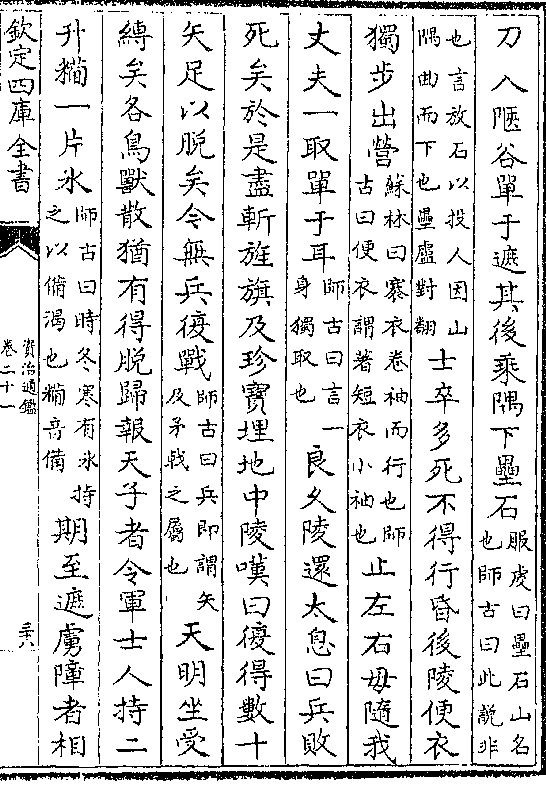 刀入陿谷單于遮其後乘隅下壘石服虔曰壘石山名也師古曰此說非
也言放石以投人因山隅曲而下也壘盧對翻士卒多死不得行昏後陵便衣
獨步出營蘇林曰褰衣卷袖而行也師古曰便衣謂著短衣小袖也止左右毋隨我
丈夫一取單于耳師古曰言一身獨取也良久陵還太息曰兵敗
死矣於是盡斬旌旗及珍寶埋地中陵嘆曰復得數十
矢足以脫矣今無兵復戰師古曰兵即謂矢及矛戟之屬也天明坐受
縛矣各鳥獸散猶有得脫歸報天子者令軍士人持二
升糒一片冰師古曰時冬寒有冰持之以備渴也糒音備期至遮虜障者相
欽定四庫全書
資治通鑑
卷二十一